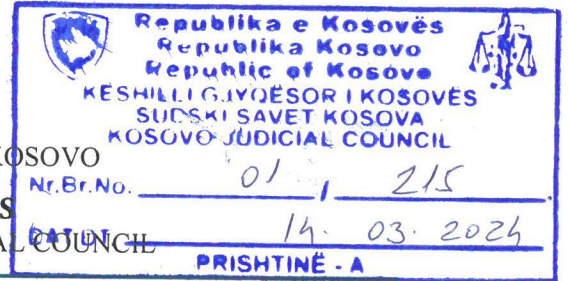 Republika e Kosovës
Republika Kosovo
Republic of Kosovo
KËSHILLI GJYQËSOR I KOSOVËS
SUDSKI SAVET KOSOVA
KOSOVO JUDICIAL COUNCIL
KOSOVO
Nr.Br.No. 01 / 215
S
COUNCIL
14. 03. 2024
PRISHTINË - A